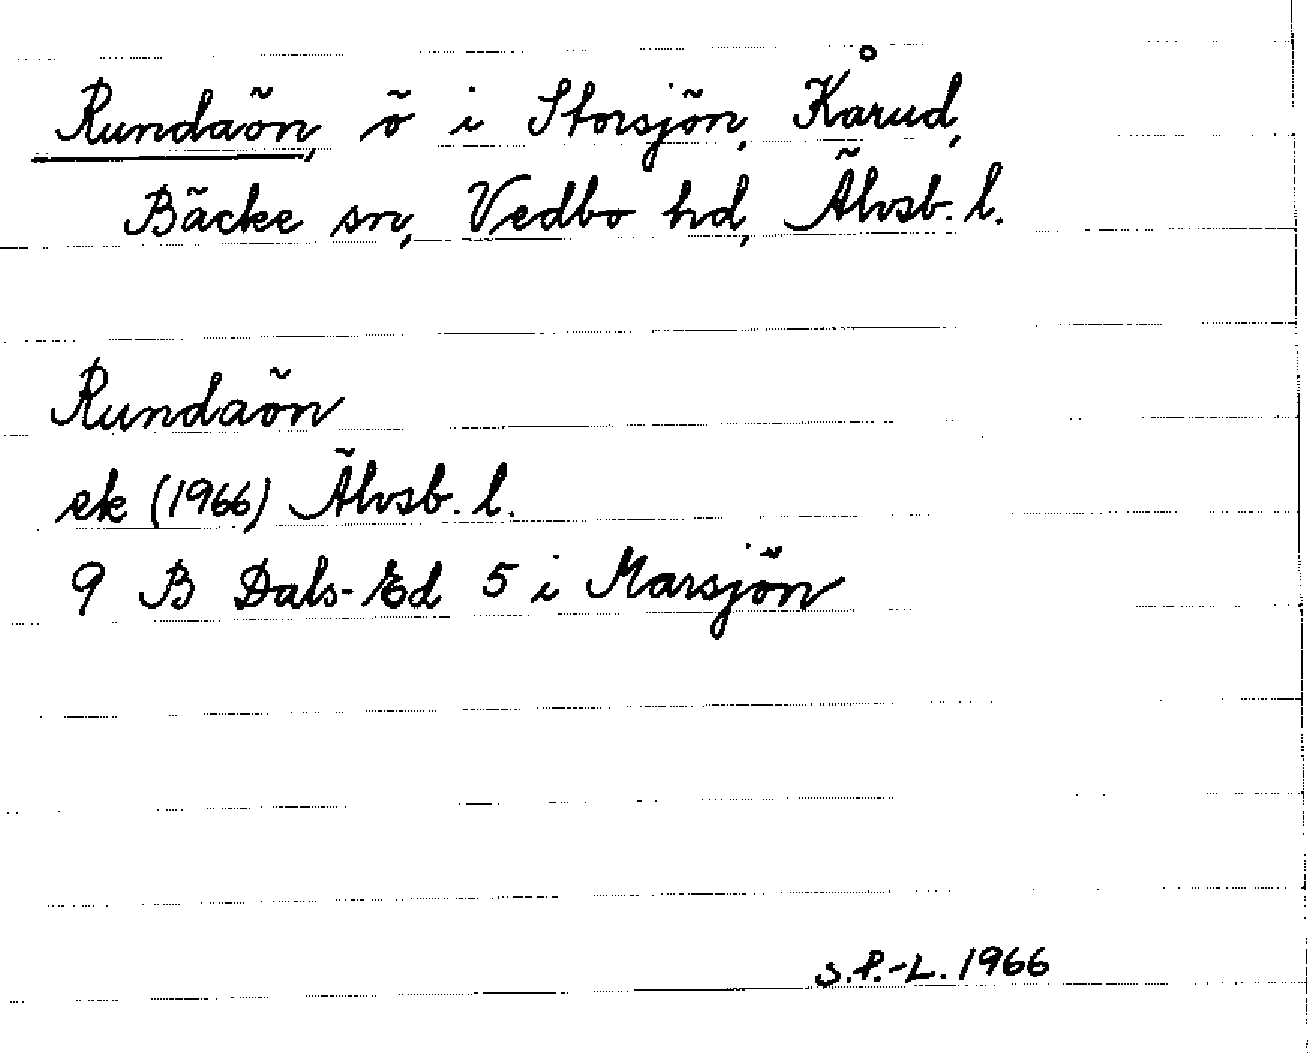 Rundaön, ö i Storsjön, Kårud,
Bäcke sn, Vedbo hd, Älvsb. l.
Rundaön
ek (1966) Älvsb. l.
9 B Dals-Ed 5 i Marsjön
S.P.-L. 1966